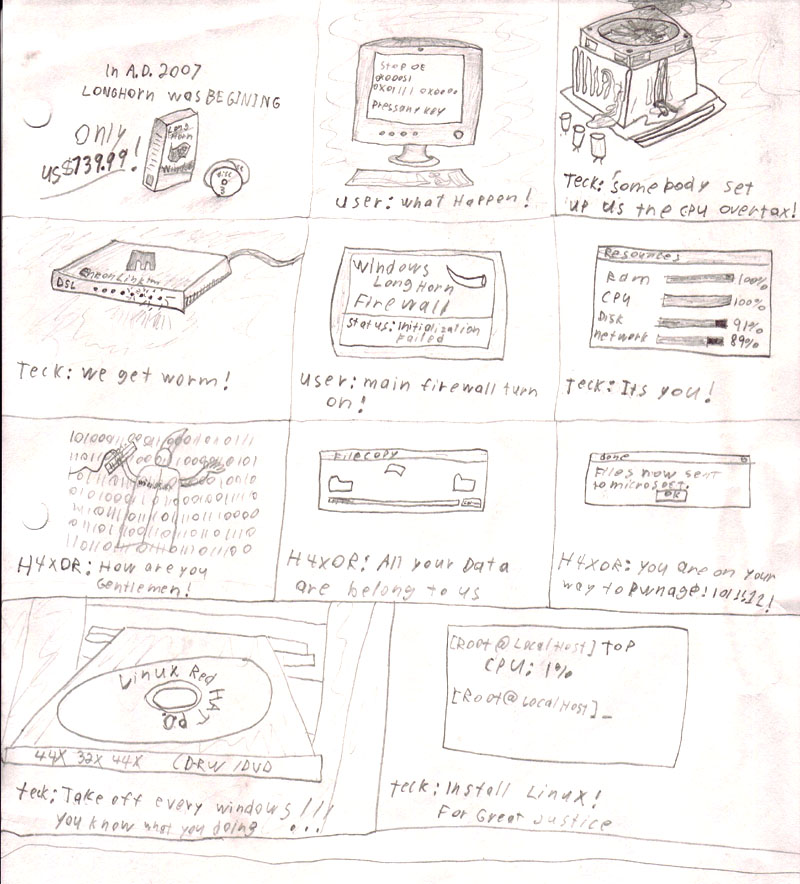 In A.D. 2007
LONGHORN was BEGINING
ONLY
US$739.99!
Long
Horn
STOP OE
Press any key
User: What Happen!
Teck: Somebody set
up us the CPU overtax!
DSL
Teck: We get worm!
Windows
LongHorn
Firewall
Status: Initialization
Failed
User: main firewall turn
on!
Resources
Ram 100%
CPU 100%
Disk 91%
network 89%
Teck: Its you!
H4XOR: How are you
Gentlemen!
Filecopy
H4XOR: All your Data
are belong to us
done
Files now sent
to microsoft.
OK
H4XOR: You are on your
way to pwnage!
Linux Red
Hat
44X 32X 44X CDRW/DVD
teck: Take off every windows!!!
You know what you doing ...
[Root@LocalHost] TOP
CPU: 1%
[Root@LocalHost]_
teck: Install Linux!
For Great Justice